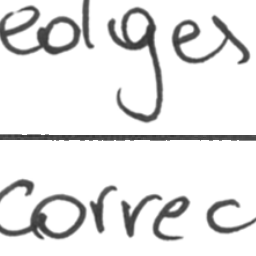 edges
correc